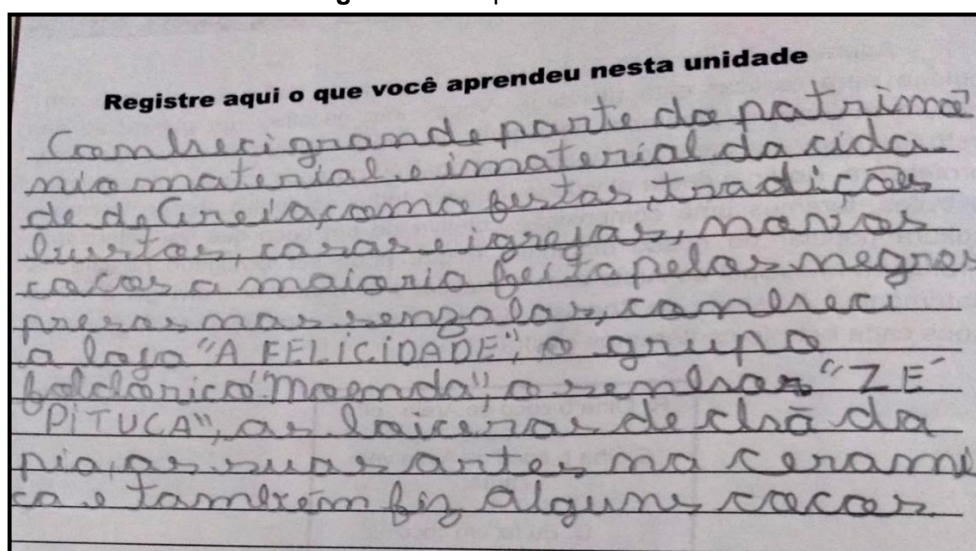 Registre aqui o que você aprendeu nesta unidade
Comheci grande parte do patrimo
nio material e imaterial da cida
de de Areia, como festas, tradições
casas e igrejas, novos
cocos a maioria feita pelos negros
presos nas senzalas, comheci
a loja "A FELICIDADE", o grupo
folclórico "Moenda", o senhor "ZÉ
PITUCA", as loiceras de chã da
pia, as suas artes na cerami
ca e também fiz alguns cocos.